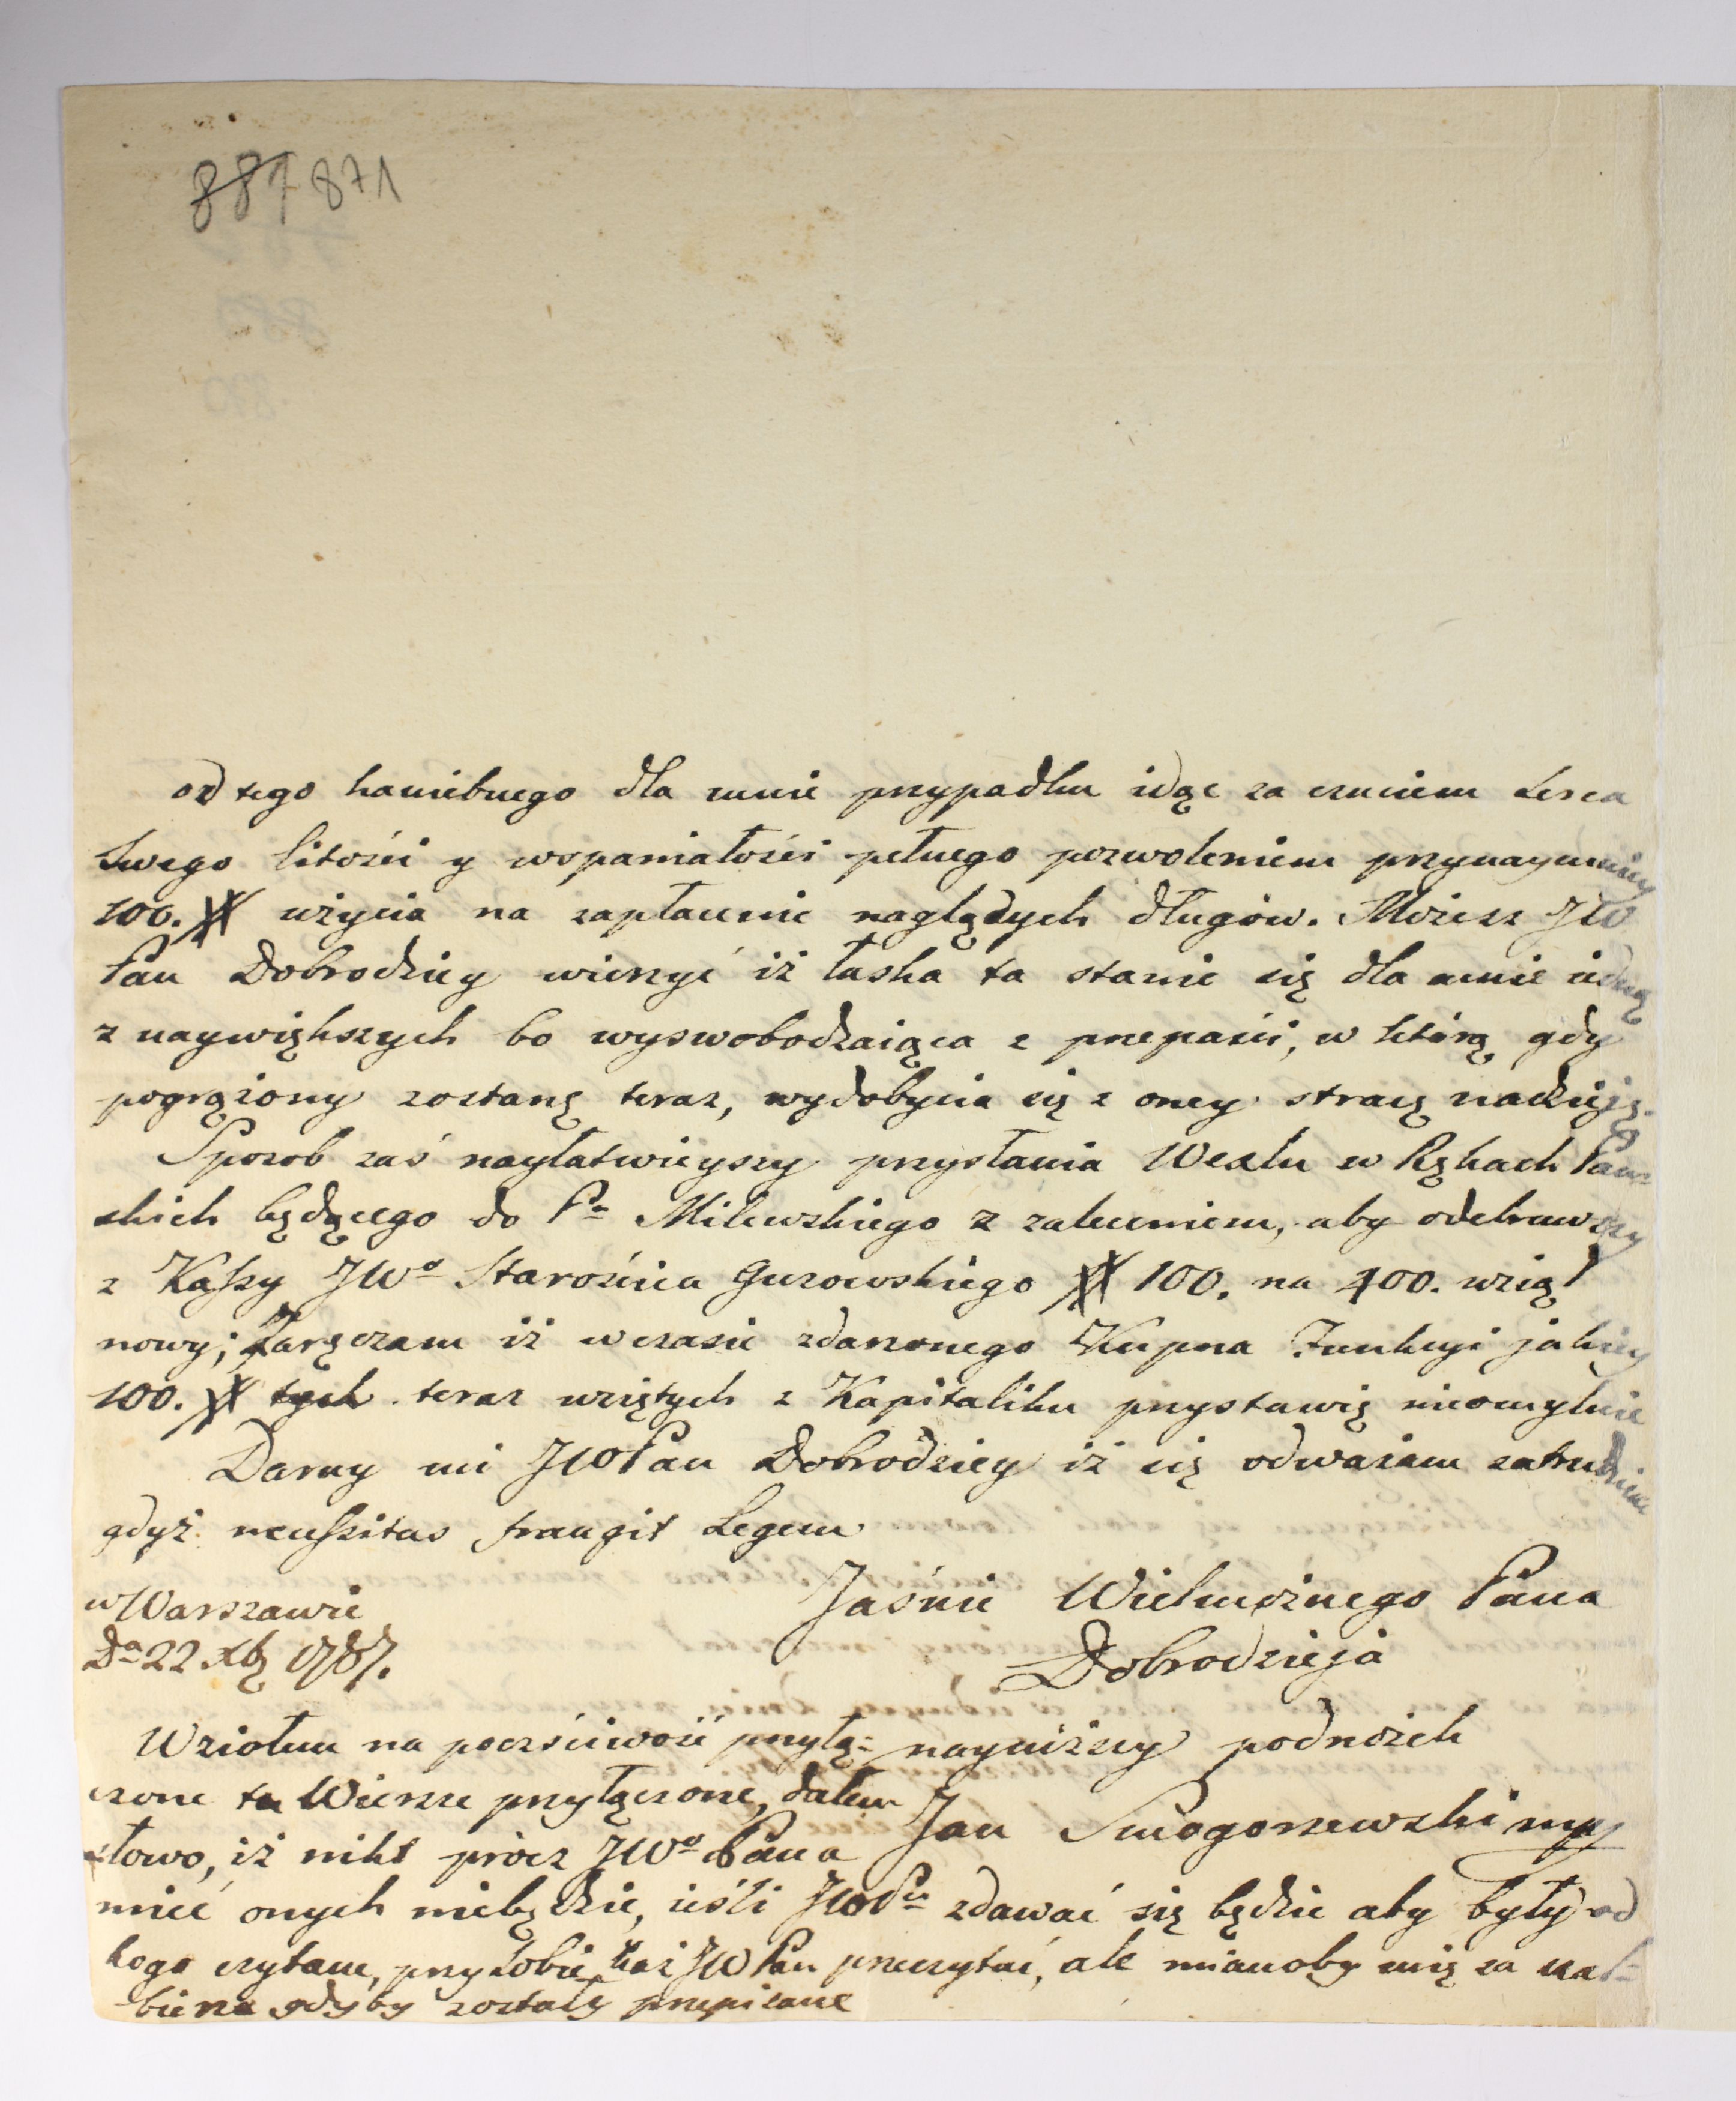 887 871
od tego haniebnego dla mnie przypadku idąc za czuciem Serca
Swego litości y wspaniałości pełnego pozwoleniem przynaymniey
100. # użycia na zapłacenie naglądych długów. Możesz JW
Pan Dobrodziey wierzyć iż łaska ta stanie się dla mnie iedną
z naywiększych bo wyswobodzaiąca z przepaści, w którą gdy
pogrążony zostanę teraz, wydobycia się z oney stracę nadzieję.
Sposob zaś nayłatwieyszy przysłania Wexlu w Rękach Pań=
skich będącego do Pa Milewskiego z zaleceniem, aby odebrawszy
z Kassy JWo Starościca Gurowskiego # 100. na 400. wziął
nowy; Zaręczam iż w czasie zdarzonego Kupna Funkcyi jakiey
100. # tych teraz wziętych z Kapitaliku przystawię nieomylnie
Daruy mi JWPan Dobrodziey iż się odważam zatrudzienie
gdyż necessitas frangit Legem
Jaśnie Wielmożnego Pana
Dobrodzieja
w Warszawie
Da 22 Xbę 1787.
nayniższy podnóżek
Jan Smogorzewski mpp
Wziołem na poczściwość przyłą=
czone tu Wiersze przyłączone, dałem
słowo, iż nikt prócz JWo Pana
mieć onych niebędzie, ieśli JWPu zdawać się będzie aby były od
kogo czytane, przy Sobie każ JW Pan przeczytać, ale mianoby mię za kal=
bierza gdyby zostały przepisane